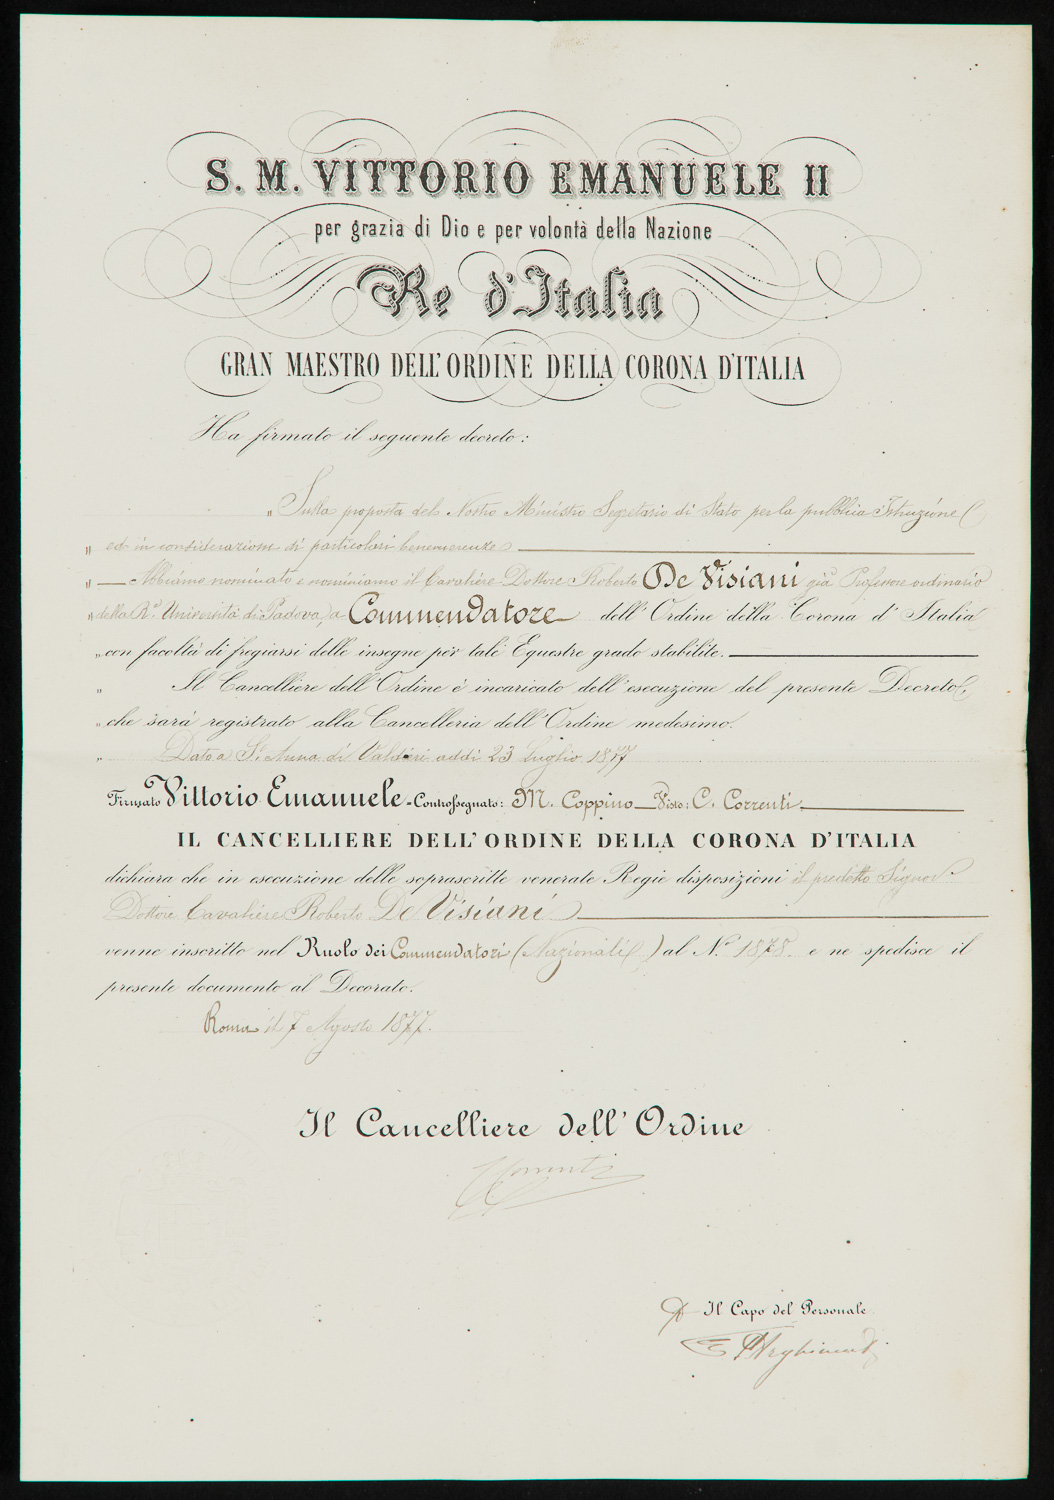 S. M. VITTORIO EMANUELE II
per grazia di Dio e per volontà della Nazione
Re d'Italia
GRAN MAESTRO DELL'ORDINE DELLA CORONA D'ITALIA
Ha firmato il seguente decreto:
„ Sulla proposta del Nostro Ministro Segretario di Stato per la pubblica Istruzione
„ ed in considerazione di particolari benemerenze
„ — Abbiamo nominato e nominiamo il Cavaliere Dottore Roberto De Visiani già Professore ordinario
„ della Rª. Università di Padova, a Commendatore dell'Ordine della Corona d'Italia
„ con facoltà di fregiarsi delle insegne per tale Equestre grado stabilite.
„ Il Cancelliere dell'Ordine è incaricato dell'esecuzione del presente Decreto,
„ che sarà registrato alla Cancelleria dell'Ordine medesimo.
„ Dato a St. Anna di Valdieri addì 23 Luglio 1877
Firmato Vittorio Emanuele - Controssegnato: M. Coppino — Visto: C. Correnti.
IL CANCELLIERE DELL'ORDINE DELLA CORONA D'ITALIA
dichiara che in esecuzione delle soprascritte venerate Regie disposizioni il predetto Signor
Dottore Cavaliere Roberto De Visiani
venne inscritto nel Ruolo dei Commendatori (Nazionali) al N.º 1878. e ne spedisce il
presente documento al Decorato.
Roma il 7 Agosto 1877.
Il Cancelliere dell'Ordine
Correnti
Il Capo del Personale